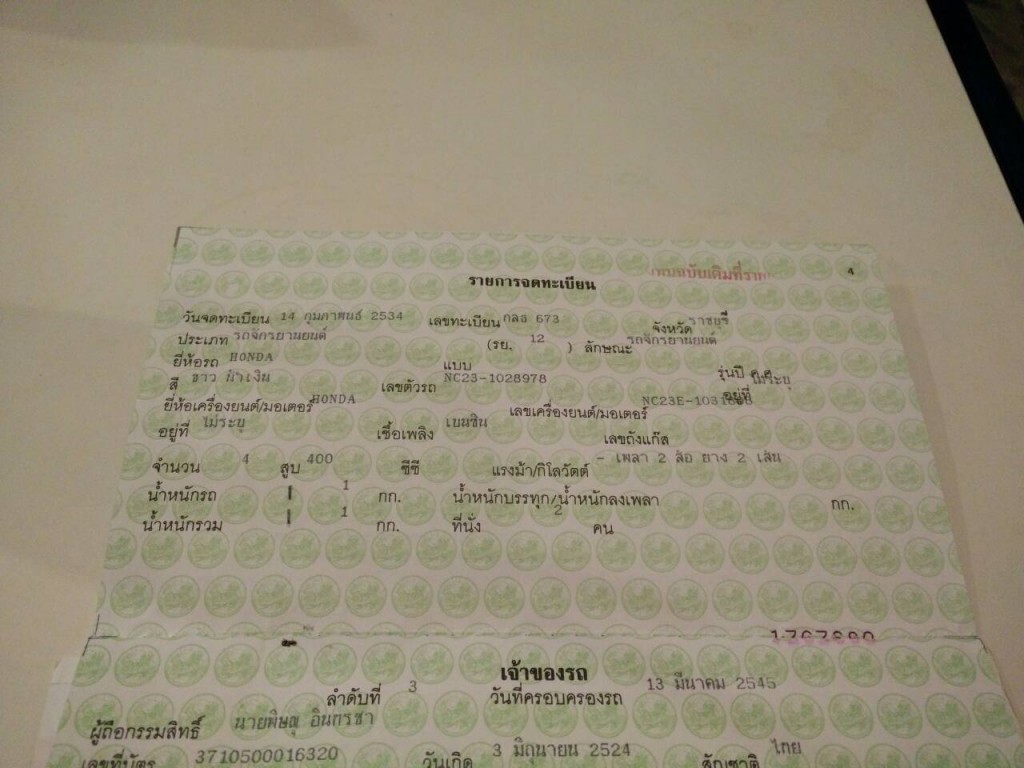 4
รายการจดทะเบียน
วันจดทะเบียน 14 กุมภาพันธ์ 2534 เลขทะเบียน กลธ 673 จังหวัด ราชบุรี
ประเภท รถจักรยานยนต์ (รย. 12 ) ลักษณะ รถจักรยานยนต์
ยี่ห้อรถ HONDA แบบ รุ่นปี
สี ขาว น้ำเงิน เลขตัวรถ NC23-1028978 อยู่ที่ ไม่ระบุ
ยี่ห้อเครื่องยนต์/มอเตอร์ HONDA เลขเครื่องยนต์/มอเตอร์
อยู่ที่ ไม่ระบุ เชื้อเพลิง เบนซิน เลขถังแก๊ส
จำนวน 4 สูบ 400 ซีซี แรงม้า/กิโลวัตต์ - เพลา 2 ล้อ ยาง 2 เส้น
น้ำหนักรถ 1 กก. น้ำหนักบรรทุก/น้ำหนักลงเพลา กก.
น้ำหนักรวม 1 กก. ที่นั่ง 2 คน
เจ้าของรถ
ลำดับที่ 3 วันที่ครอบครองรถ 13 มีนาคม 2545
ผู้ถือกรรมสิทธิ์ นายพิษณุ อินกรชา
เลขที่บัตร 3710500016320 วันเกิด 3 มิถุนายน 2524 สัญชาติ ไทย